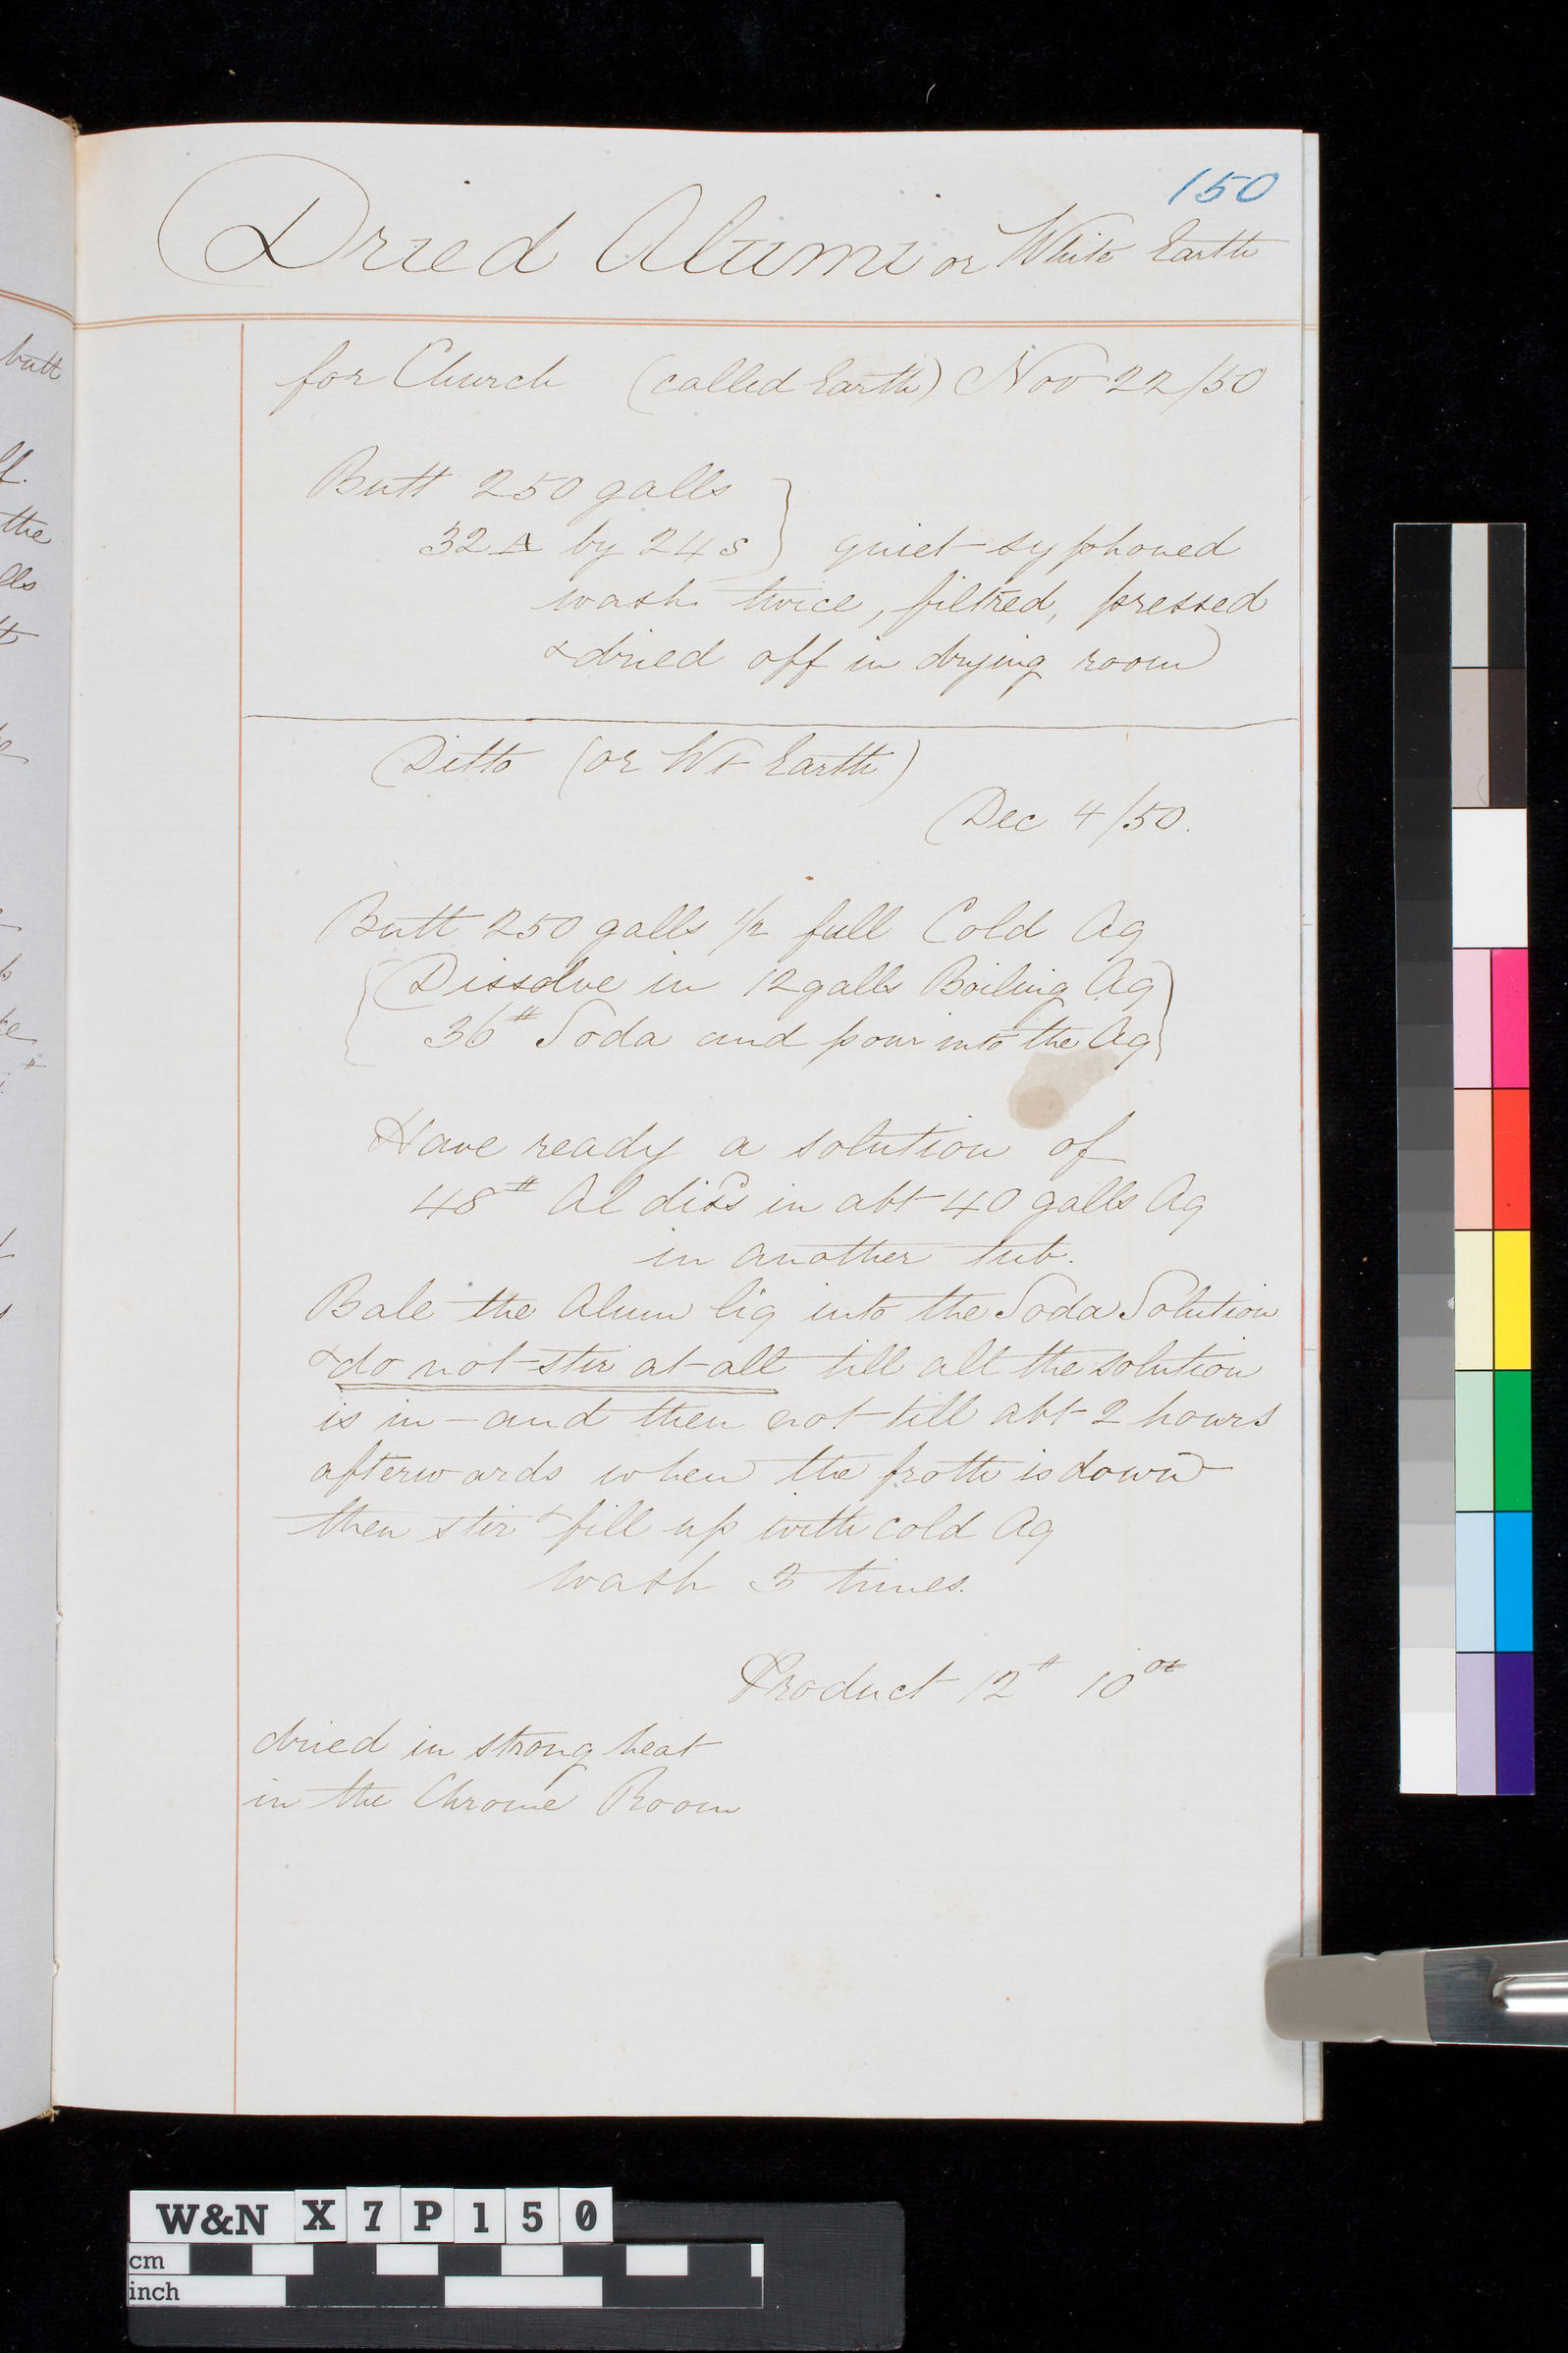 150
Dried Alumi or White Earth
for Church (called Earth) Nov 22/50
Butt 250 galls
32 A by 24 S } quiet syphoned
wash twice, filtred, pressed
& dried off in drying room
Ditto (or Wt Earth)
Dec 4/50.
Butt 250 galls 1/2 full Cold Aq
{ Dissolve in 12 galls Boiling Aq }
36# Soda and pour into the Aq
Have ready a solution of
48# Al diss in abt 40 galls Aq
in another tub.
Bale the Alum liq into the Soda Solution
& do not stir at all till all the solution
is in - and then not till abt 2 hours
afterwards when the froth is down
then stir & fill up with cold Aq
wash times.
Product 12# 10 oz
dried in strong heat
in the Chrome Room
butt
ff.
the
lls
W&N X7P150
cm
inch